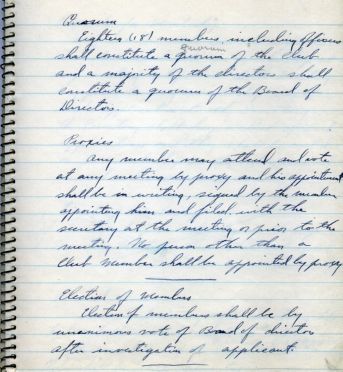 Quorum
Eighteen (18) members including Officers
shall constitute a quorum of the Club
quorum
and a majority of the directors shall
constitute a quorum of the Board of
Directors.
Proxies
Any member may attend and vote
at any meeting by proxy and his appointment
shall be in writing, signed by the member
appointing him and filed with the
secretary at the meeting or prior to the
meeting. No person other than a
Club Member shall be appointed by proxy
Election of Members
Election of members shall be by
unanimous vote of Board of directors
after investigation of applicant.